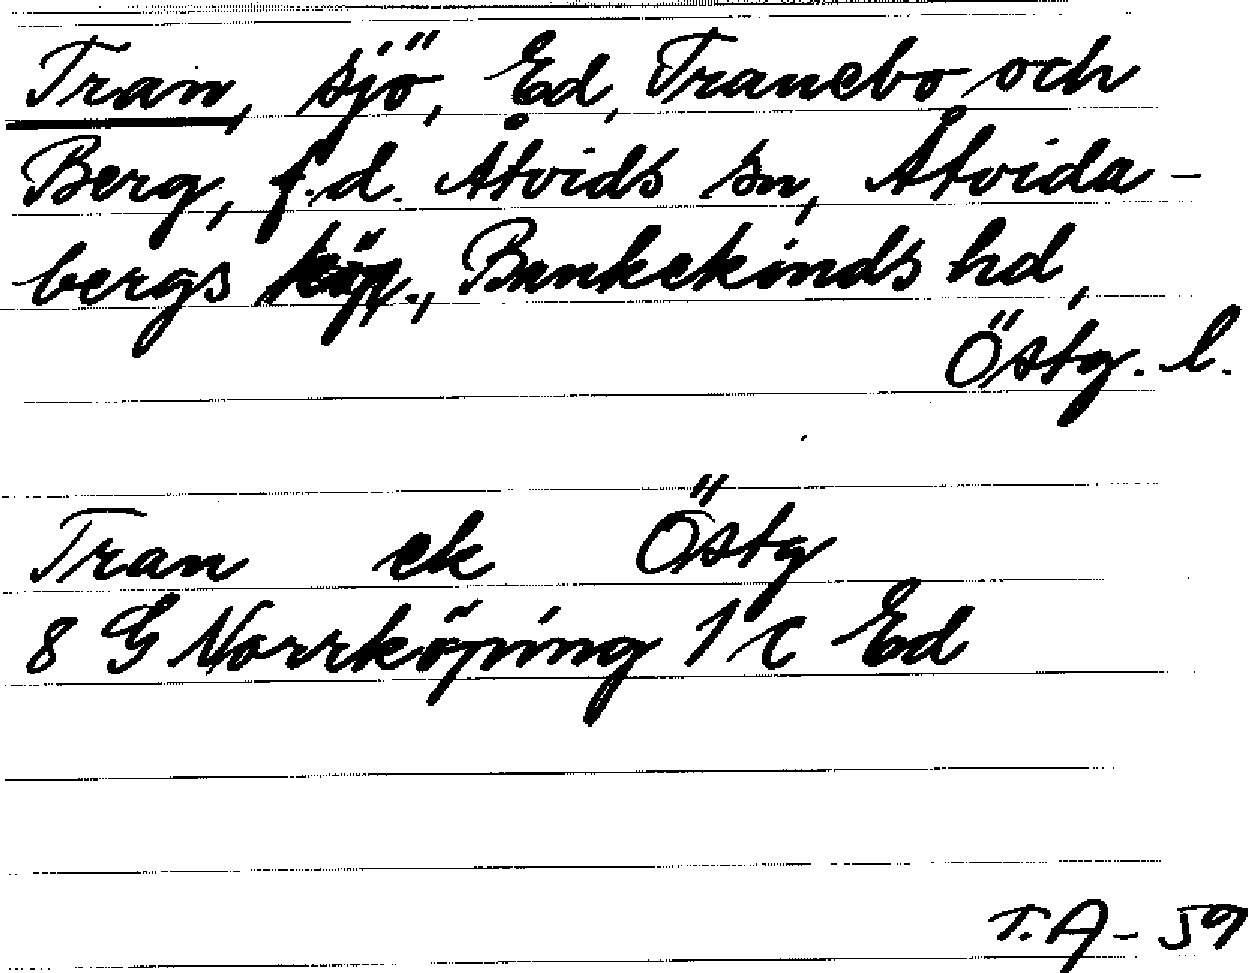 Tran, sjö, Ed, Tranebo och
Berg, f.d. Åtvids sn, Åtvida-
bergs köp., Bankekinds hd,
Östg. l.
Tran ek Östg
8 G Norrköping 1 c Ed
T.A - 59